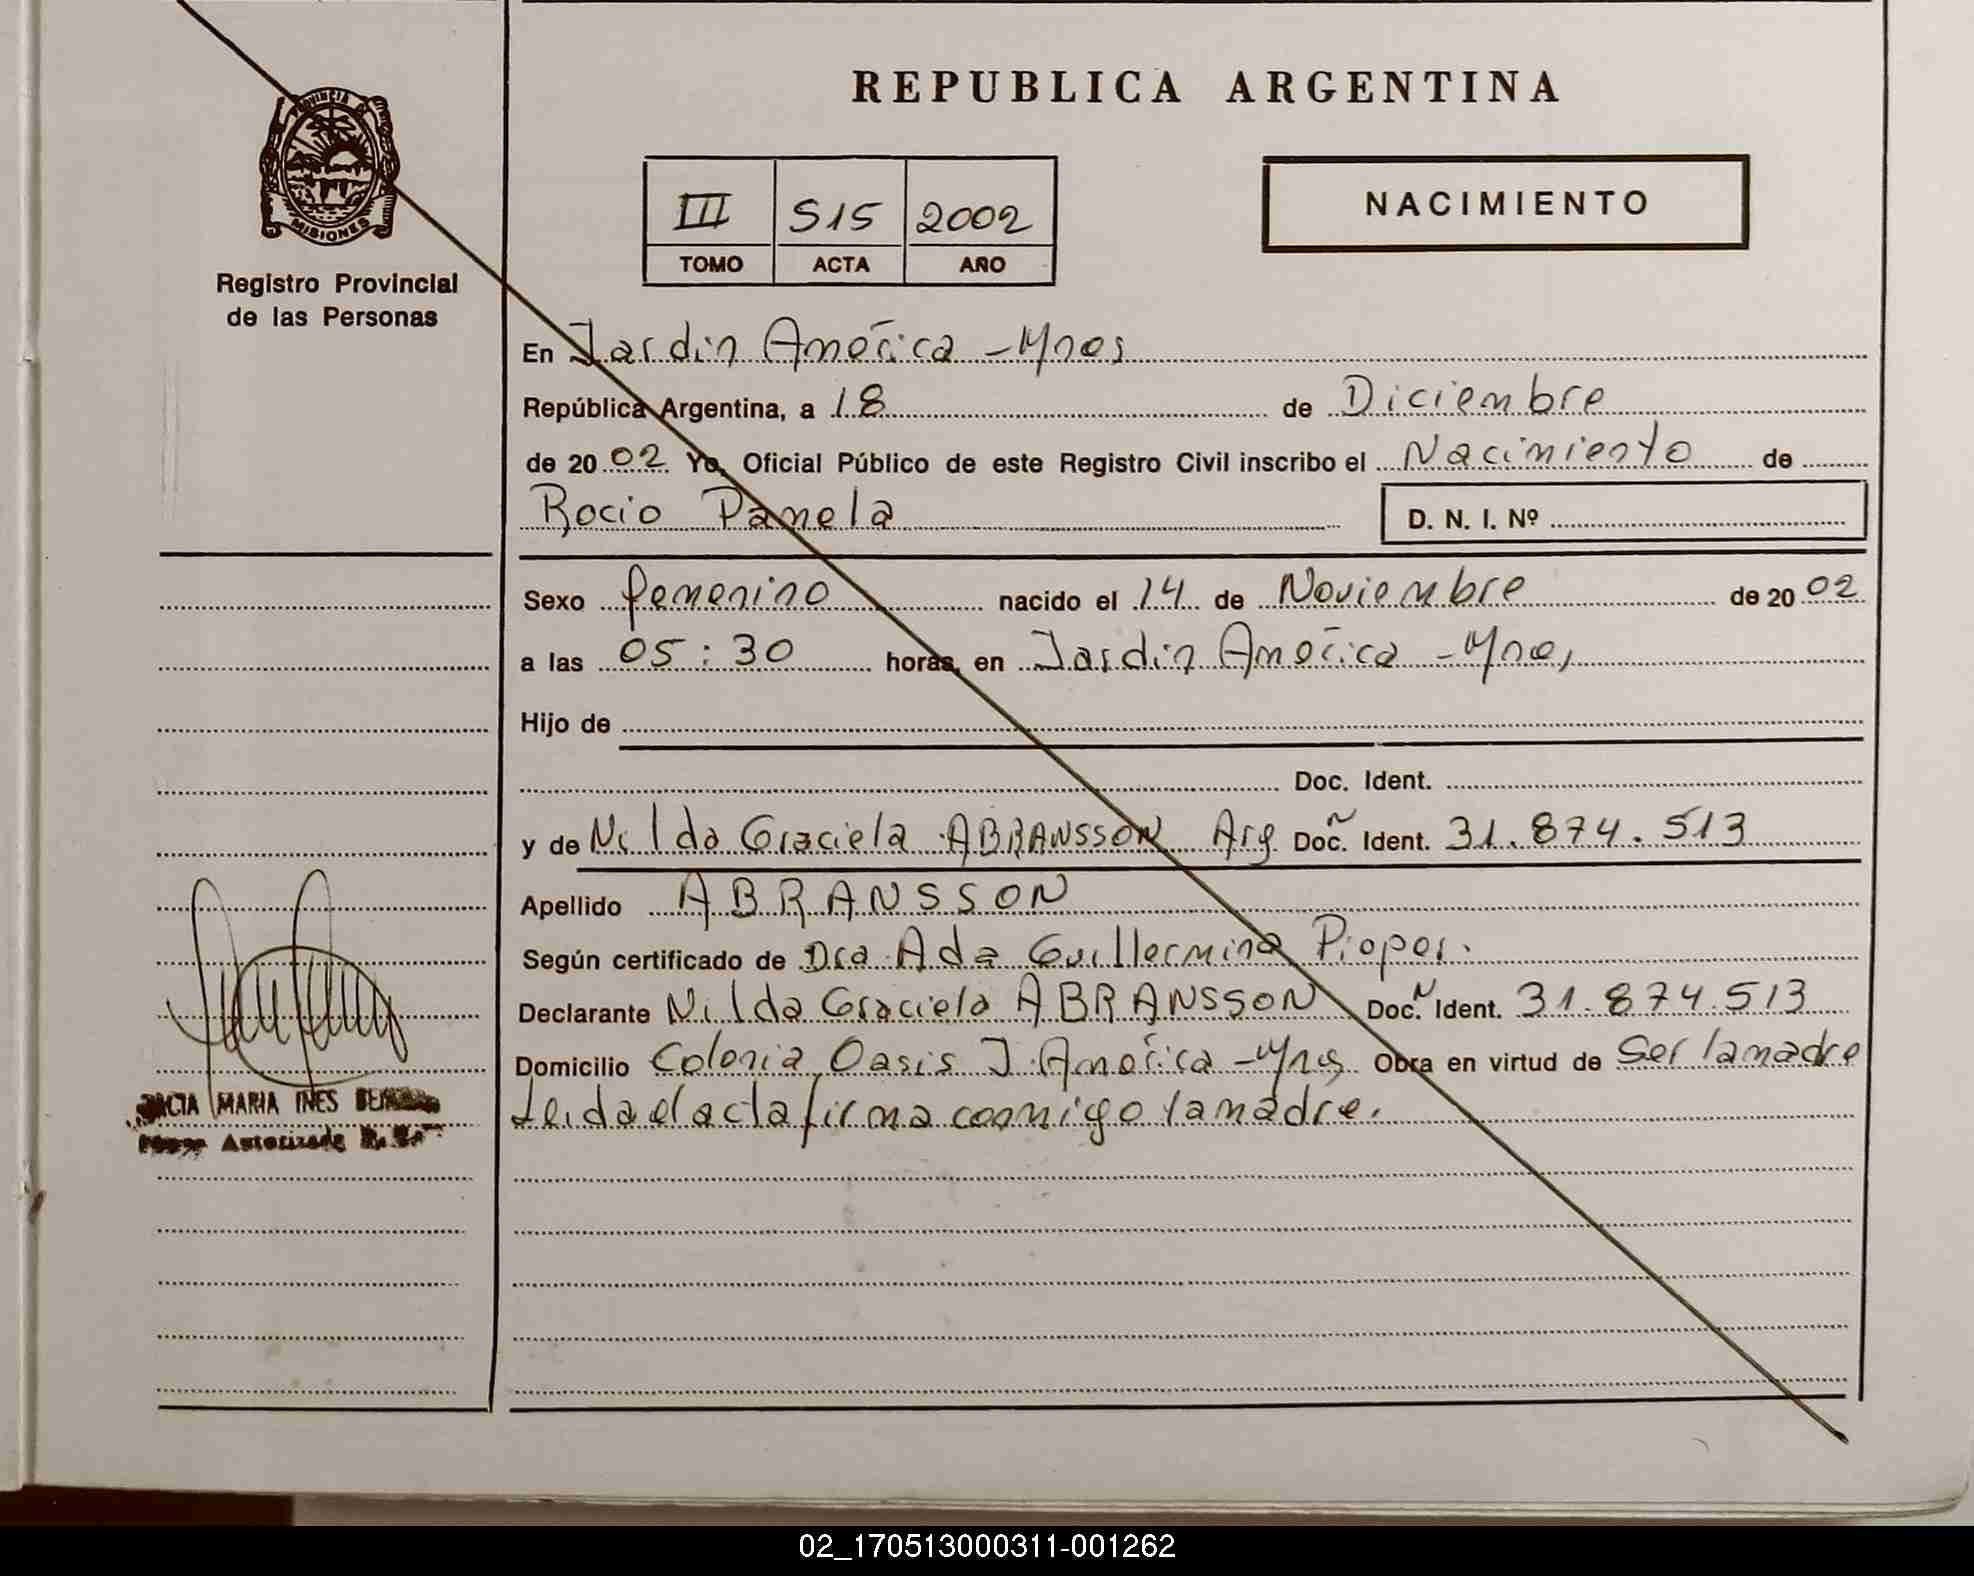 REPUBLICA ARGENTINA
PROVINCIA DE
MISIONES
Registro Provincial
de las Personas
III S15 2002
TOMO ACTA AÑO
NACIMIENTO
En Jardin América - Mnes
República Argentina, a 18 de Diciembre
de 2002 Yo, Oficial Público de este Registro Civil inscribo el Nacimiento de
Rocio Pamela D. N. I. Nº
Sexo femenino nacido el 14 de Noviembre de 2002
a las 05:30 horas, en Jardin América - Mnes
Hijo de
Doc. Ident.
y de Nilda Graciela ABRANSSON Arg Doc. N Ident. 31.874.513
Apellido ABRANSSON
Según certificado de Dra Ada Guillermina
Declarante Nilda Graciela ABRANSSON Doc. N Ident. 31.874.513
Domicilio Colonia Oasis J. América - Mnes Obra en virtud de Ser la madre
Leida el acta firma conmigo la madre.
MARIA INES
Autorizada
02_170513000311-001262